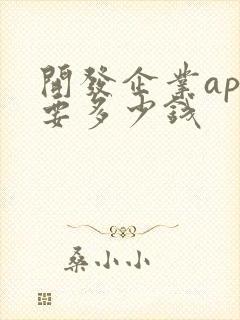 開發企業ap
要多少钱
桑小小